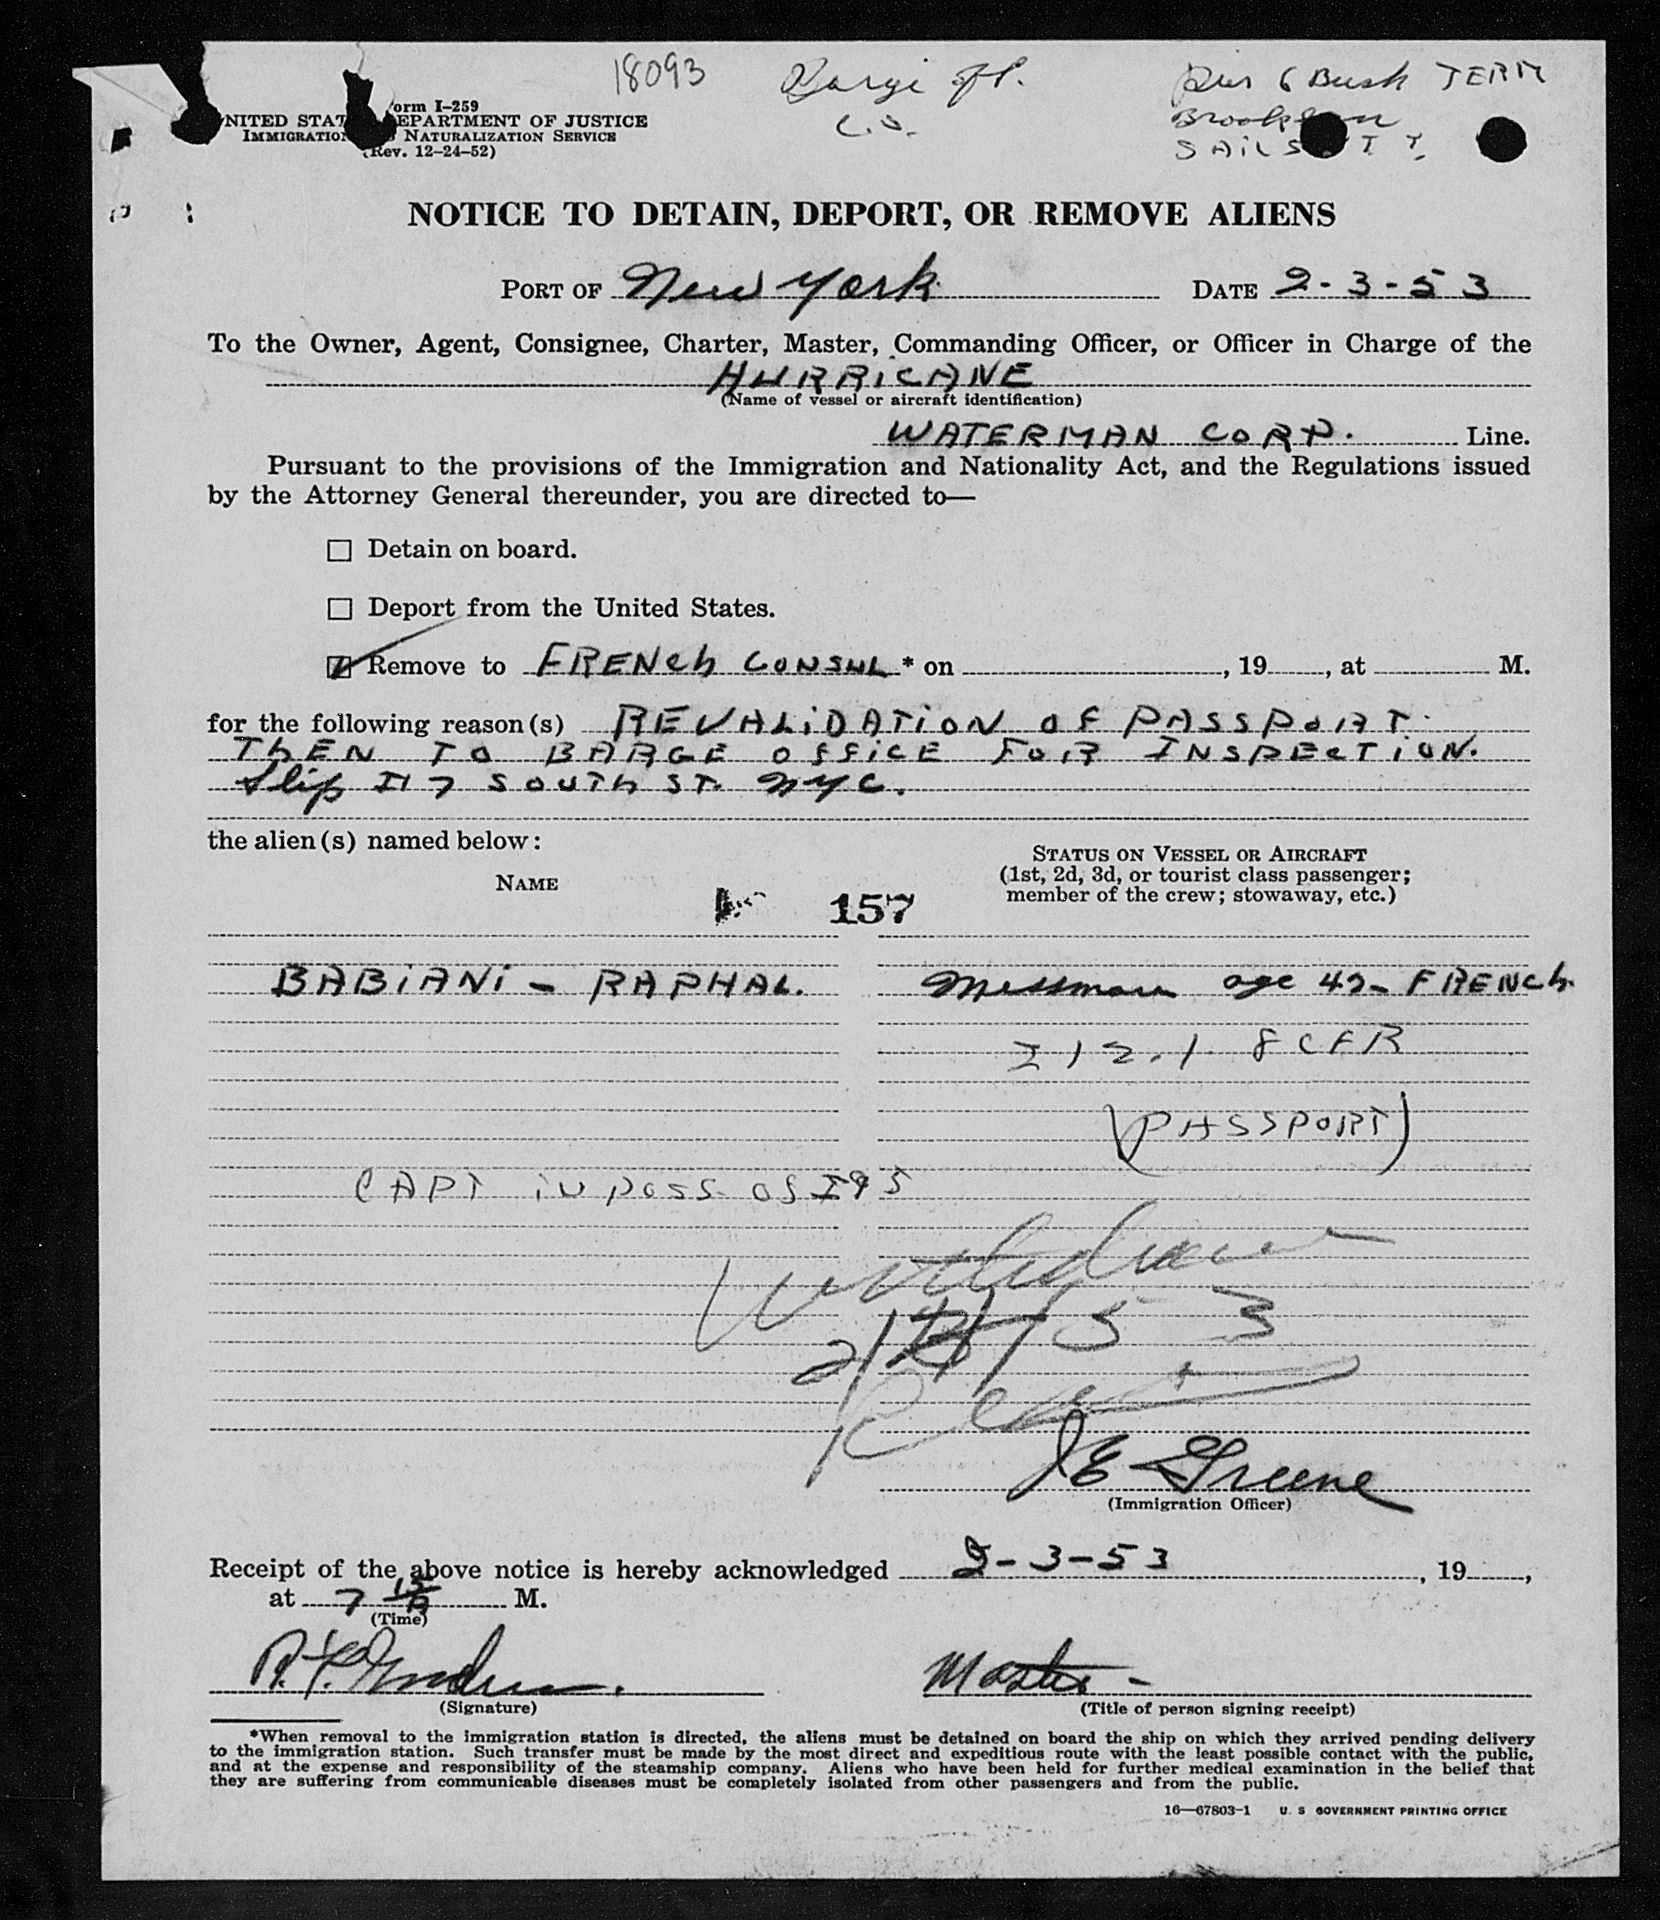 18093
Pier 6 Bush TERM
Brooklyn
orm I-259
NITED STAT EPARTMENT OF JUSTICE
IMMIGRATIO NATURALIZATION SERVICE
(Rev. 12-24-52)
NOTICE TO DETAIN, DEPORT, OR REMOVE ALIENS
PORT OF New York DATE 2-3-53
To the Owner, Agent, Consignee, Charter, Master, Commanding Officer, or Officer in Charge of the
HURRICANE
(Name of vessel or aircraft identification)
WATERMAN CORP. Line.
Pursuant to the provisions of the Immigration and Nationality Act, and the Regulations issued
by the Attorney General thereunder, you are directed to—
Detain on board.
Deport from the United States.
Remove to FRENCh CONSUL * on , 19 , at M.
for the following reason(s) REVALiDATiON OF PASSPORT.
ThEN TO BARGE OFFiCE FOR INSPECTiON.
Slip 7 SOUTh ST. NYC.
the alien(s) named below:
STATUS ON VESSEL OR AIRCRAFT
(1st, 2d, 3d, or tourist class passenger;
member of the crew; stowaway, etc.)
NAME
157
BABiANi - RAPHAL. Messman age 42- FRENCh.
212.1 8 CFR
(PASSPORT)
CAPT iN POSS. OF I95
Withdrawn
2/4/53
J E Greene
(Immigration Officer)
Receipt of the above notice is hereby acknowledged 2-3-53 , 19 ,
at 7 15 M.
(Time)
Master -
(Signature) (Title of person signing receipt)
*When removal to the immigration station is directed, the aliens must be detained on board the ship on which they arrived pending delivery
to the immigration station. Such transfer must be made by the most direct and expeditious route with the least possible contact with the public,
and at the expense and responsibility of the steamship company. Aliens who have been held for further medical examination in the belief that
they are suffering from communicable diseases must be completely isolated from other passengers and from the public.
16—67803-1 U. S GOVERNMENT PRINTING OFFICE